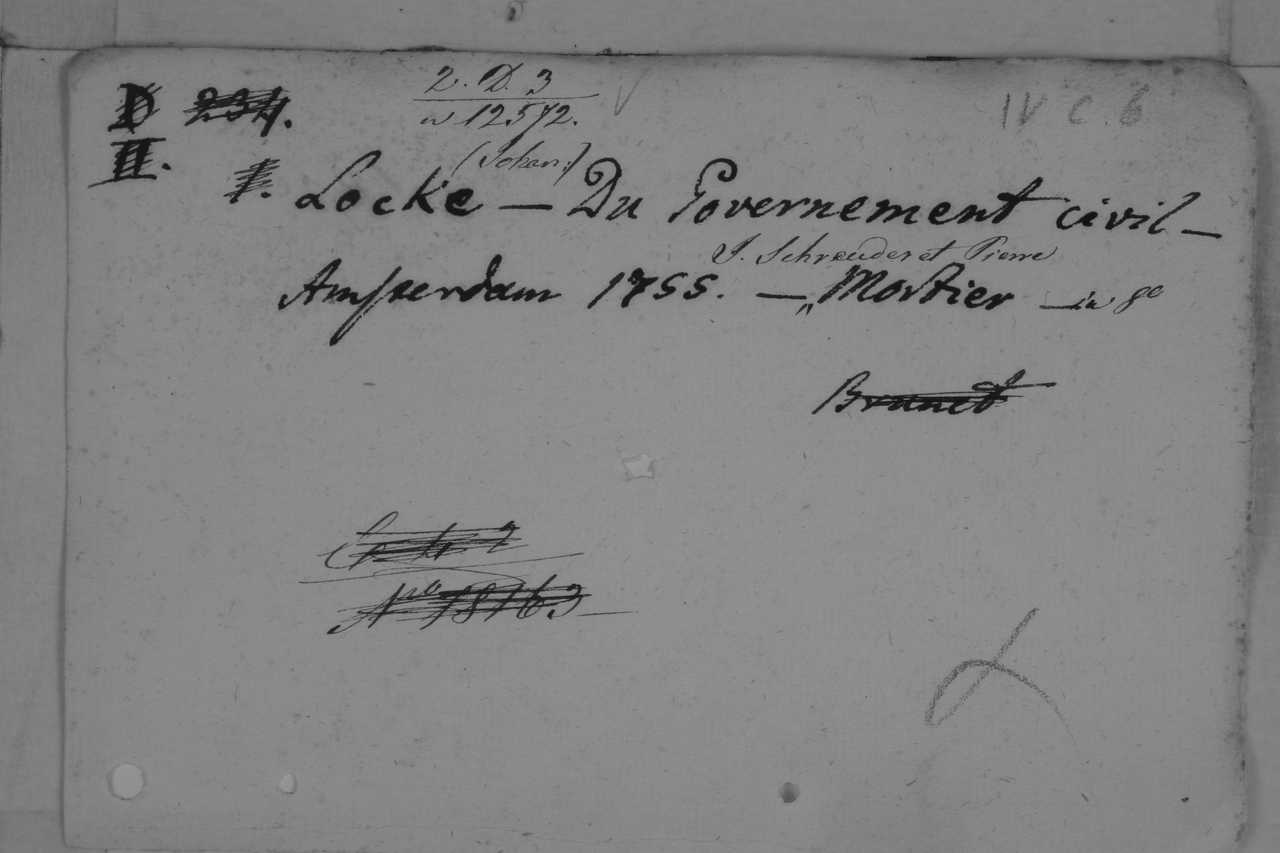 2. D. 3
D 234.
n 12572.
IV C. 6
II.
(Johan:)
I. Locke — Du Governement civil —
J. Schreuder et Pierre
Amsterdam 1755. — „ Mortier — in 8º
Brunet
Nº 18163